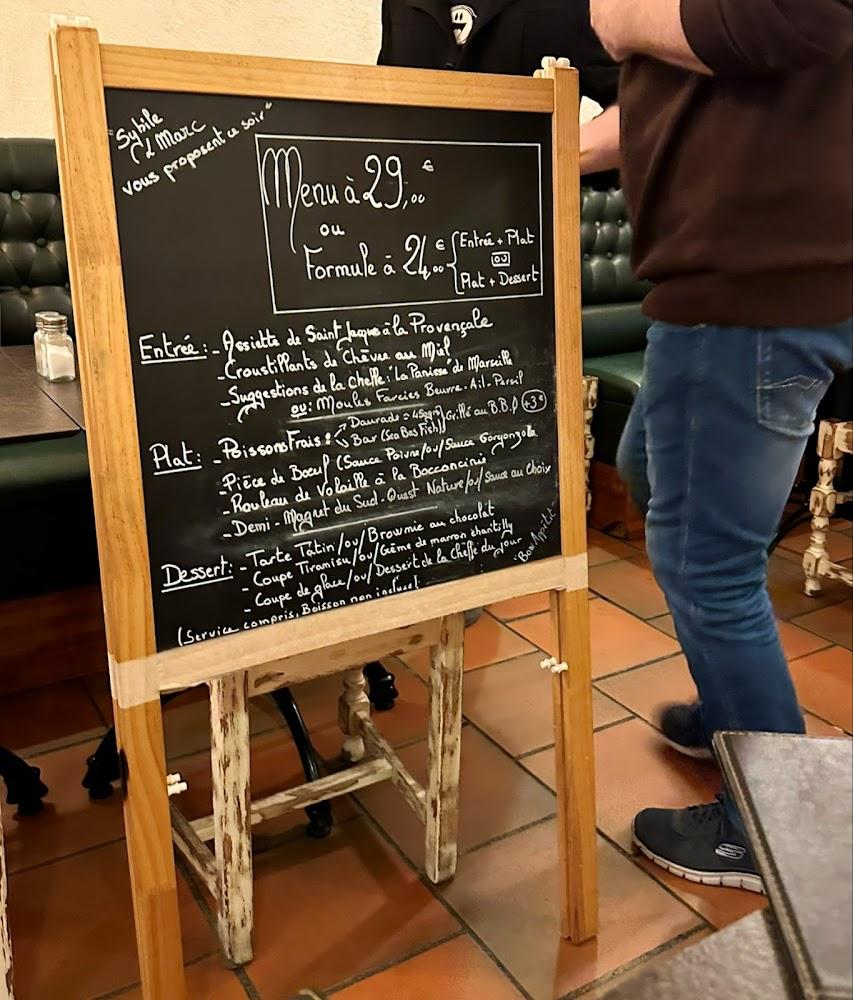 "Sybile
& Marc
vous proposent ce soir"
Menu à 29,00 €
ou
Formule à 24,00 € { Entrée + Plat
ou
Plat + Dessert
Entrée: - Assiette de Saint Jaque à la Provençale
- Croustillants de Chèvre au Miel
- Suggestions de la Cheffe: "La Panisse" de Marseille
ou: Moules Farcies Beurre-Ail-Persil
Plat: - Poissons Frais: Daurade ≈ 450grs Grillé au B.B.Q (+3€)
Bar (Sea Bas Fish)
- Pièce de Boeuf (Sauce Poivre/ou/Sauce Gorgonzola
- Rouleau de Volaille à la Bocconcinis
- Demi-Magret du Sud-Ouest Nature/ou/Sauce au Choix
Dessert: - Tarte Tatin/ou/Brownie au chocolat
- Coupe Tiramisu/ou/Crème de marron chantilly
- Coupe de glace/ou/Dessert de la Cheffe du jour
"Bon Appétit"
(Service compris, Boisson non incluse)